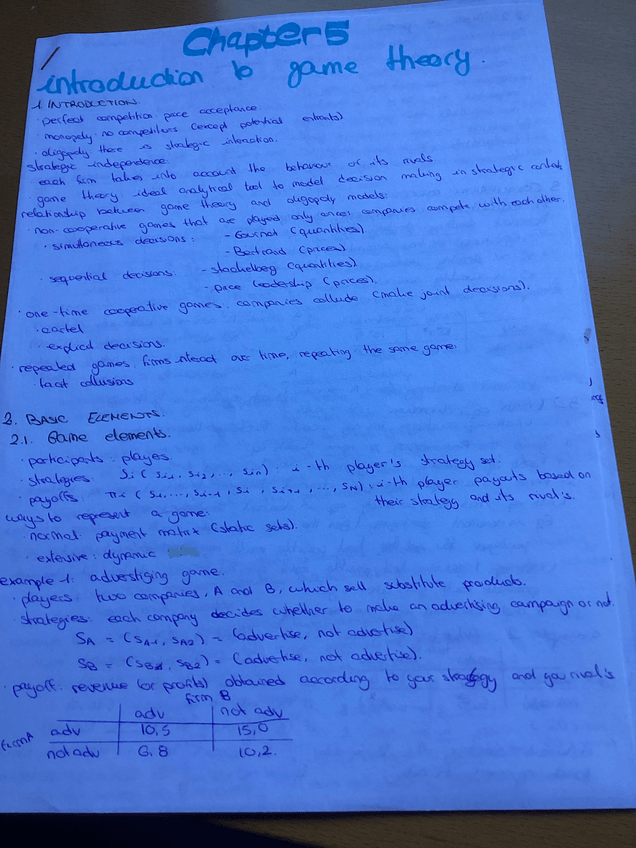 Chapter 5
introduction to game theory.
1. INTRODUCTION.
· perfect competition: price acceptance.
· monopoly: no competitors (except potential entrants)
· oligopoly there is strategic interaction.
strategic independence:
each firm takes into account the behaviour of its rivals
game theory: ideal analytical tool to model decision making in strategic contexts
relationship between game theory and oligopoly models:
· non-cooperative games that are played only once: companies compete with each other.
· simultaneous decisions: - Cournot (quantities)
- Bertrand (prices)
· sequential decisions: - stackelberg (quantities)
- price leadership (prices).
· one-time cooperative games: companies collude (make joint decisions).
· cartel
· explicit decisions.
· repeated games: firms interact over time, repeating the same game.
· tacit collusions
2. BASIC ELEMENTS.
2.1. Game elements.
· participants: players
· strategies: Si (Si1, Si2, ..., Sin): i-th player's strategy set.
· payoffs: πi (S1, ..., Si-1, Si, Si+1, ..., SN): i-th player payouts based on
their strategy and its rival's.
ways to represent a game:
normal: payment matrix (static sets).
· extensive: dynamic
example 1: advertising game.
· players: two companies, A and B, which sell substitute products.
· strategies: each company decides whether to make an advertising campaign or not.
SA = (SA1, SA2) = (advertise, not advertise)
SB = (SB1, SB2) = (advertise, not advertise).
· payoff: revenue (or profits) obtained according to your strategy and your rival's
firm B
adv not adv
firm A adv 10,5 15,0
not adv 6,8 10,2.